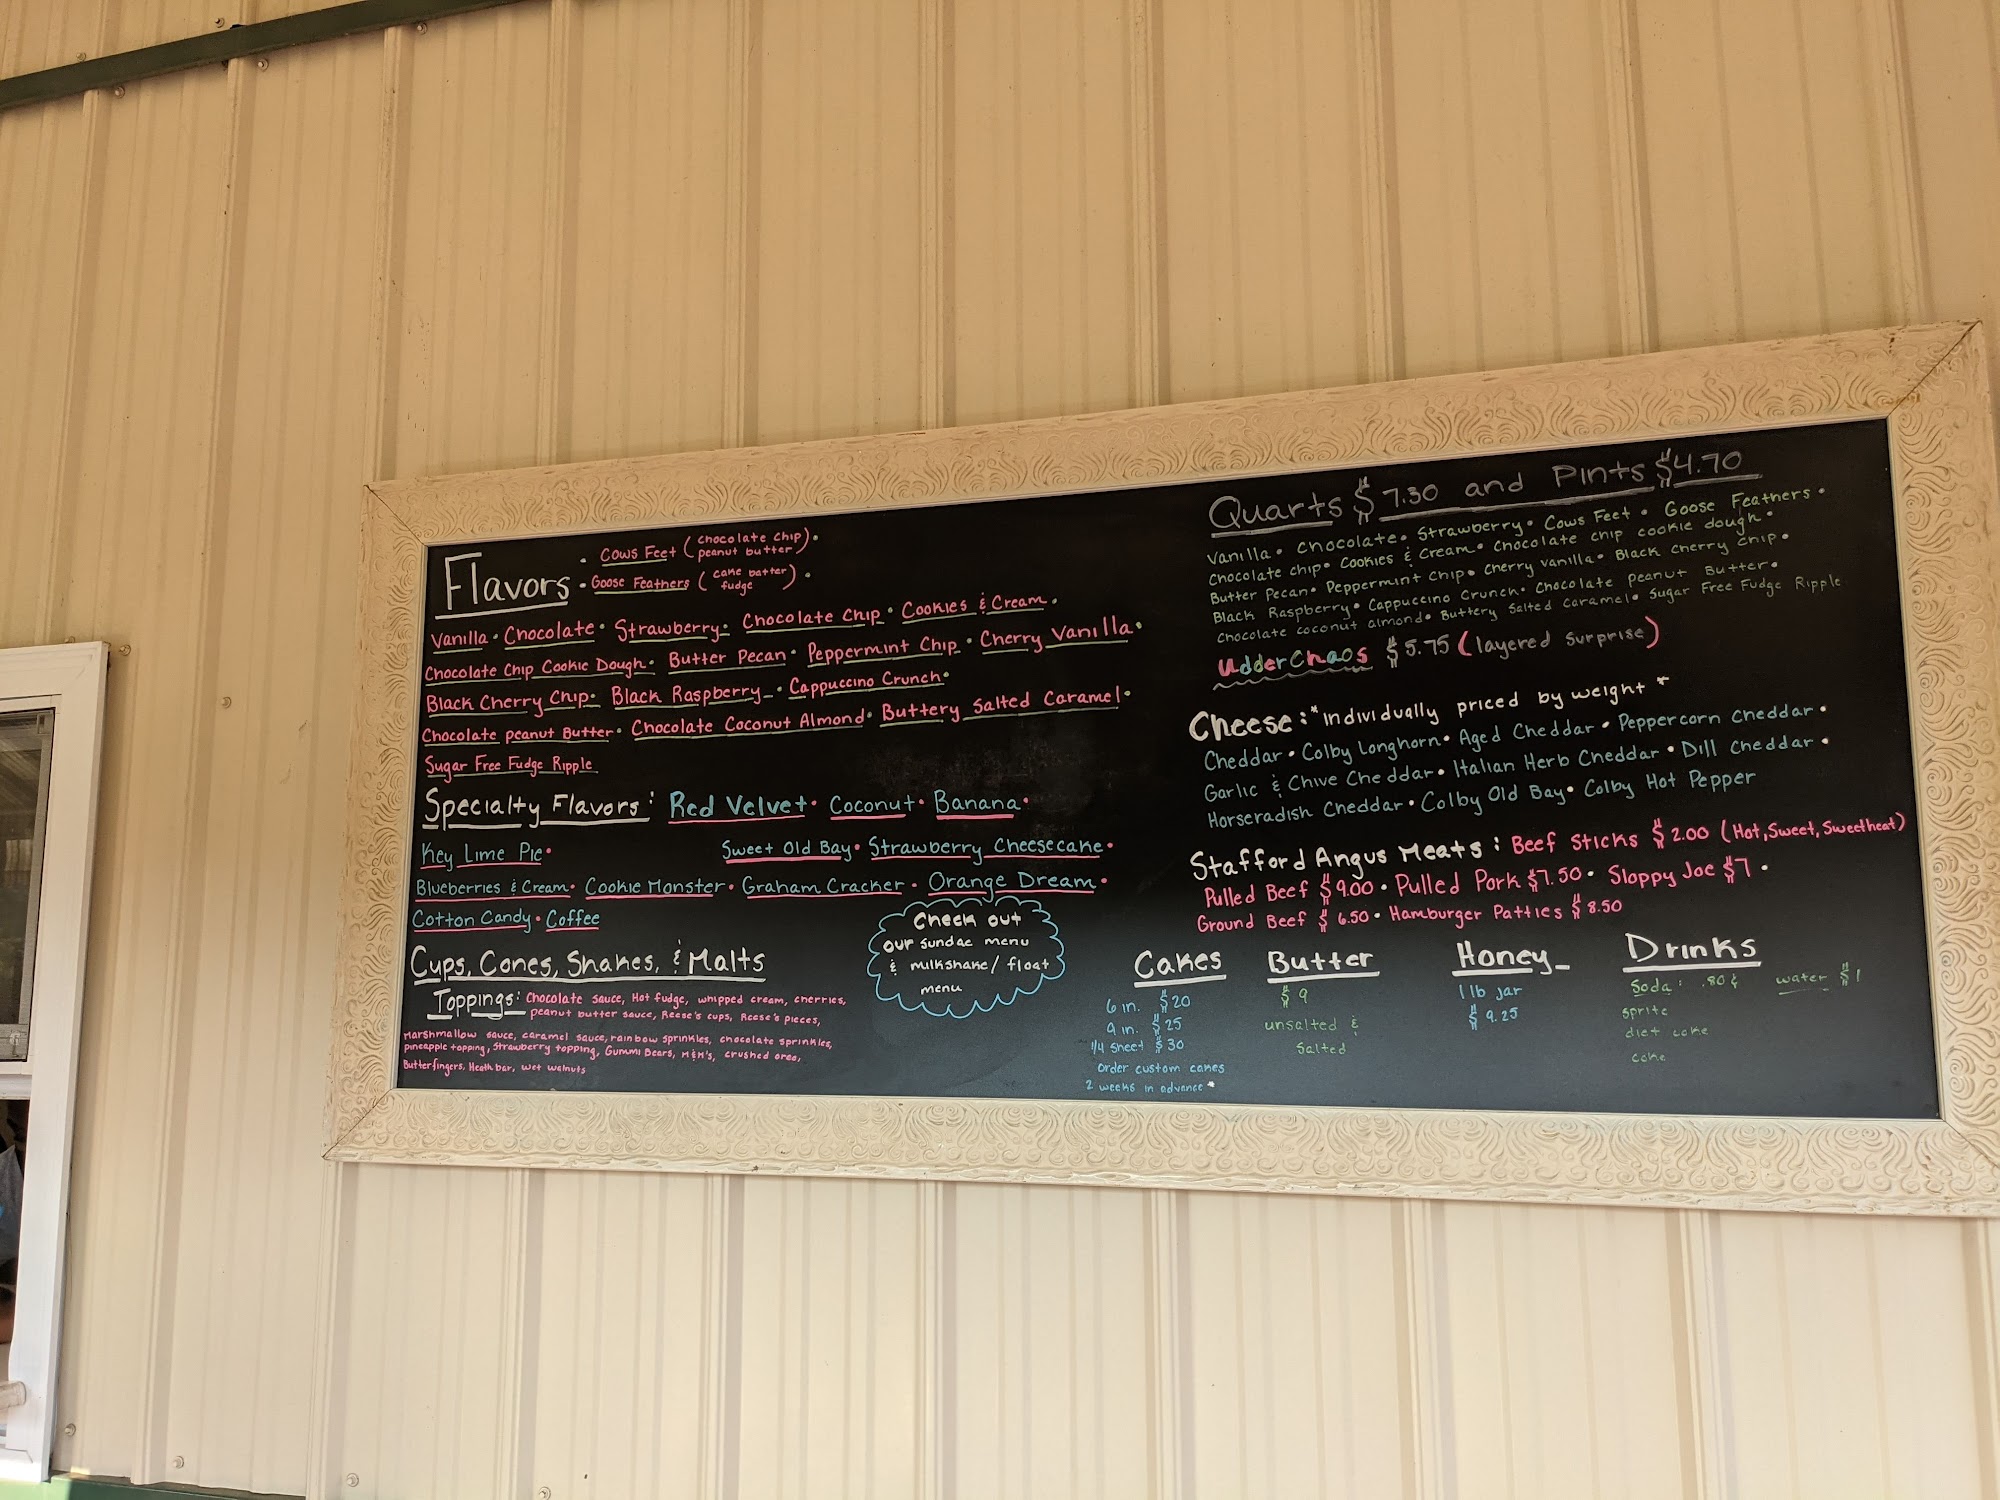 Flavors
• Cows Feet (chocolate chip peanut butter) •
• Goose Feathers (cake batter fudge) •
Vanilla • Chocolate • Strawberry • Chocolate Chip • Cookies & Cream •
Chocolate Chip Cookie Dough • Butter Pecan • Peppermint Chip • Cherry Vanilla •
Black Cherry Chip • Black Raspberry • Cappuccino Crunch •
Chocolate peanut Butter • Chocolate Coconut Almond • Buttery Salted Caramel •
Sugar Free Fudge Ripple
Specialty Flavors: Red Velvet • Coconut • Banana •
Key Lime Pie • Sweet Old Bay • Strawberry Cheesecake •
Blueberries & Cream • Cookie Monster • Graham Cracker • Orange Dream •
Cotton Candy • Coffee
Check out
our sundae menu
& milkshake/float
menu
Cups, Cones, Shakes, & Malts
Toppings: Chocolate sauce, Hot fudge, whipped cream, cherries,
peanut butter sauce, Reese's cups, Reese's pieces,
Marshmallow sauce, caramel sauce, rainbow sprinkles, chocolate sprinkles,
pineapple topping, Strawberry topping, Gummi Bears, M&M's, crushed oreo,
Butterfingers, Heath bar, wet walnuts
Quarts $7.30 and Pints $4.70
Vanilla • Chocolate • Strawberry • Cows Feet • Goose Feathers •
Chocolate chip • Cookies & Cream • Chocolate chip cookie dough •
Butter Pecan • Peppermint Chip • Cherry Vanilla • Black Cherry Chip •
Black Raspberry • Cappuccino Crunch • Chocolate peanut Butter •
Chocolate coconut almond • Buttery Salted Caramel • Sugar Free Fudge Ripple
Udder Chaos $5.75 (layered surprise)
Cheese: *individually priced by weight*
Cheddar • Colby Longhorn • Aged Cheddar • Peppercorn Cheddar •
Garlic & Chive Cheddar • Italian Herb Cheddar • Dill Cheddar •
Horseradish Cheddar • Colby Old Bay • Colby Hot Pepper
Stafford Angus Meats: Beef Sticks $2.00 (Hot, Sweet, Sweetheat)
Pulled Beef $9.00 • Pulled Pork $7.50 • Sloppy Joe $7 •
Ground Beef $6.50 • Hamburger Patties $8.50
Cakes
6 in. $20
9 in. $25
1/4 sheet $30
order custom cakes
2 weeks in advance*
Butter
$9
unsalted &
Salted
Honey
1 lb jar
$9.25
Drinks
Soda: .80¢ water $1
sprite
diet coke
coke